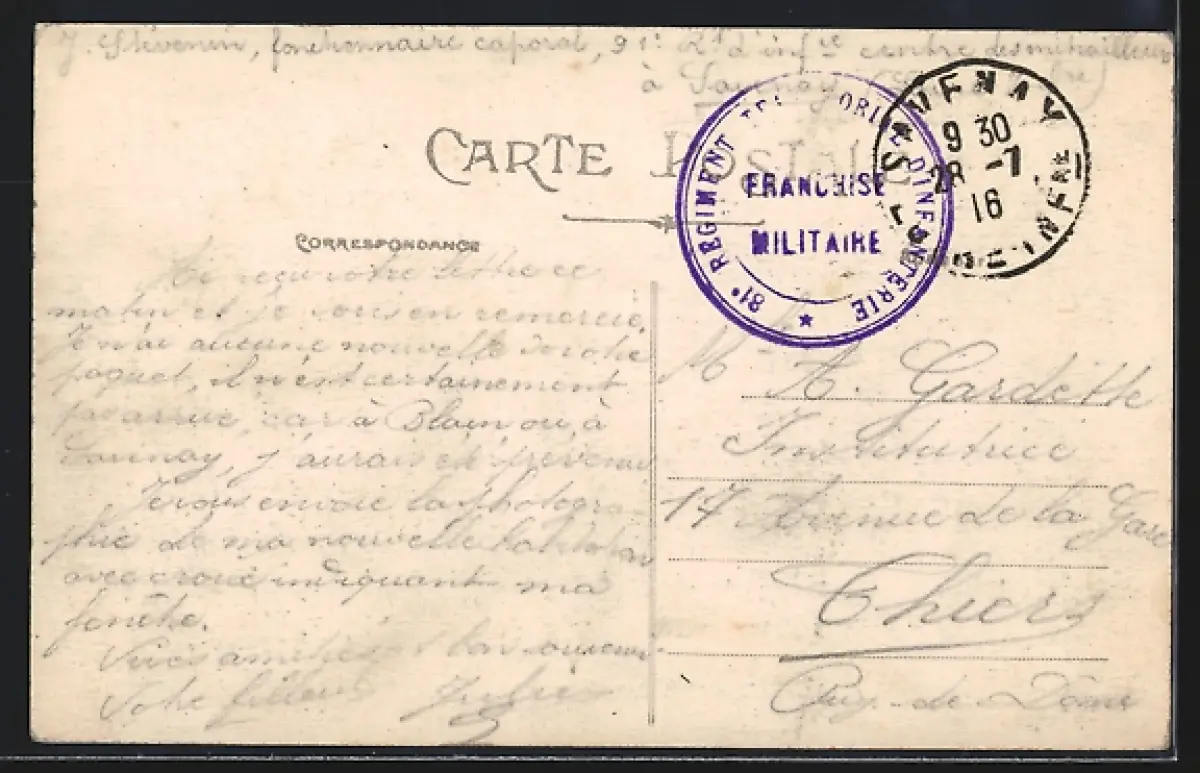 J. Stévenin, fonctionnaire caporal, 91e Rt d'infie centre des mitrailleurs
à Savenay
CARTE POSTALE
81e REGIMENT TERRITORIAL D'INFANTERIE
FRANCHISE
MILITAIRE
SAVENAY
9 30
28 -7
16
LOIRE-INFRE
CORRESPONDANCE
Ai reçu votre lettre ce
matin et je vous en remercie.
Je n'ai aucune nouvelle de votre
paquet, il n'est certainement
pas arrivé, car à Blain ou à
Savenay, j'aurais été prévenu
Je vous envoie la photogra-
phie de ma nouvelle habitation
avec croix indiquant ma
fenêtre.
Vives amitiés et bon souvenir
Votre filleul Jules
M A. Gardette
Institutrice
17 Avenue de la Gare
Thiers
Puy-de-Dôme